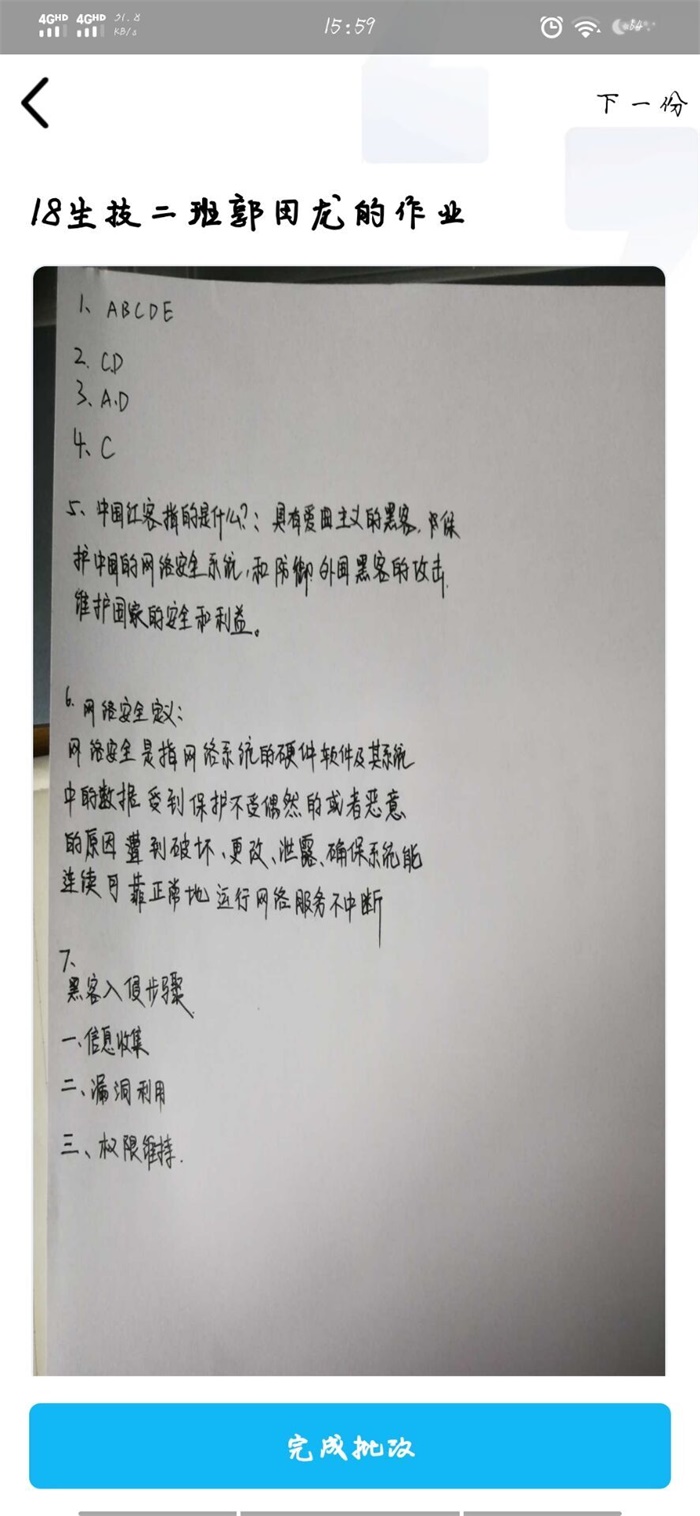 4GHD 4GHD 31.8 KB/s 15:59 54
下一份
18生技二班郭田龙的作业
1、ABCDE
2. CD
3、A.D
4、C
5、中国红客指的是什么?：具有爱国主义的黑客.
护中国的网络安全系统,和防御外国黑客的攻击.
维护国家的安全和利益。
6. 网络安全定义：
网络安全是指网络系统的硬件软件及其系统
中的数据受到保护不受偶然的或者恶意
的原因遭到破坏、更改、泄露、确保系统能
连续可靠正常地运行网络服务不中断
7、
黑客入侵步骤
一、信息收集
二、漏洞利用
三、权限维持.
完成批改